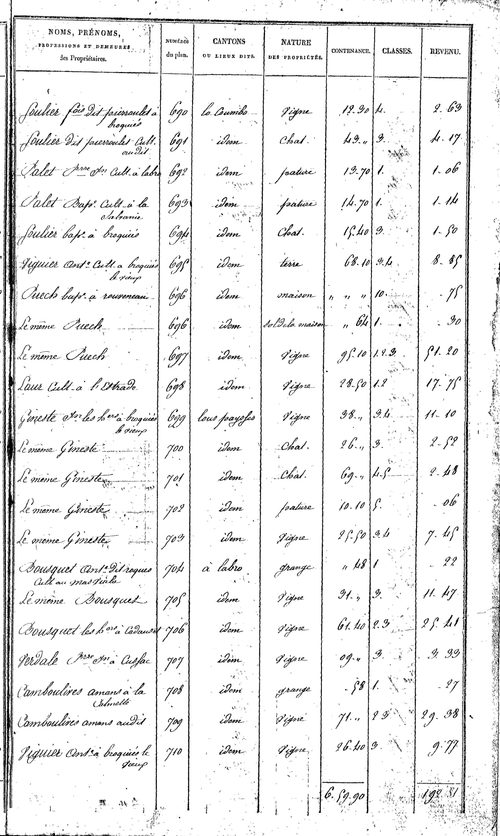 NOMS, PRÉNOMS, PROFESSIONS ET DEMEURES des Propriétaires. | NUMÉROS du plan. | CANTONS OU LIEUX DITS. | NATURE DES PROPRIÉTÉS. | CONTENANCE. | CLASSES. | REVENU.
Soulier fois dit pierroulet à broquiés 690 la Coumbo Vigne 12.30 4. 2.63
Soulier dit pierroulet Cult. audit 691 idem Chat. 43 „ 3. 4.17
Palet Cult. à labro 692 idem pature 13.70 1. 1.06
Palet Bapt. Cult. à la 693 idem pature 14.70 1. 1.14
Soulier bapt. à broquiés 694 idem Chat. 15.40 3. 1.50
Viguier Ant. Cult. à broquiés le vieux 695 idem terre 68.10 3.4 8.85
Puech bapt. à rouveneau 696 idem maison „ „ „ 10. .75
Le même Puech 696 idem sol de la maison „ 64 1. .30
Le même Puech 697 idem Vigne 95.10 1.2.3 51.20
Laur Cult. à l'Estrade 698 idem Vigne 28.50 1.2 17.75
Geneste les hers à broquiés le vieux 699 lous payssels Vigne 38 „ 3.4 11.10
Le même Géneste 700 idem Chat. 26 „ 3. 2.52
Le même Géneste 701 idem Chat. 69 „ 4.5 2.48
Le même Géneste 702 idem pature 10.10 5. .06
Le même Géneste 703 idem Vigne 25.50 3.4 7.45
Bousquet Ant. dit roques Cult. au mas 704 à labro grange „ 48 1 .22
Le même Bousquet 705 idem Vigne 31 „ 3. 11.47
Bousquet les hers à 706 idem Vigne 61.40 2.3 25.41
Verdale à Cussac 707 idem Vigne 09 „ 3. 3.33
Camboulives amans à la 708 idem grange .58 1. .27
Camboulives amans audit 709 idem Vigne 71 „ 2.3 29.38
Viguier Ant. à broquiés le vieux 710 idem Vigne 26.40 3. 9.77
6.59.90 192.81